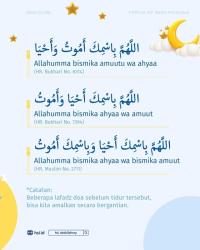 اللَّهُمَّ بِاسْمِكَ أَمُوتُ وَأَحْيَا
Allahumma bismika amuutu wa ahyaa
(HR. Bukhari No. 6314)
اللَّهُمَّ بِاسْمِكَ أَحْيَا وَأَمُوتُ
Allahumma bismika ahyaa wa amuut
(HR. Bukhari No. 7394)
اللَّهُمَّ بِاسْمِكَ أَحْيَا وَبِاسْمِكَ أَمُوتُ
Allahumma bismika ahyaa wa bismika amuut
(HR. Muslim No. 2711)
*Catatan:
Beberapa lafadz doa sebelum tidur tersebut,
bisa kita amalkan secara bergantian.